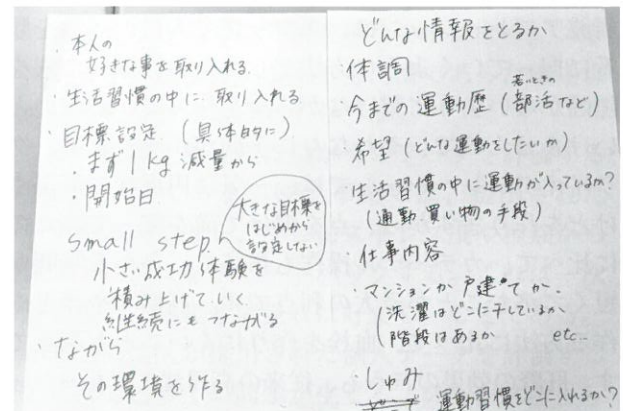 ・本人の
好きな事を取り入れる
・生活習慣の中に取り入れる
・目標設定（具体的に）
・まず1kg減量から
・開始日
大きな目標を
はじめから
設定しない
small step
小さい成功体験を
積み上げていく
継続にもつながる
・ながら
その環境を作る
どんな情報をとるか
体調
若いときの
今までの運動歴（部活など）
希望（どんな運動をしたいか）
生活習慣の中に運動が入っているか?
（通勤・買い物の手段）
仕事内容
・マンションか戸建てか、
（洗濯はどこに干しているか
階段はあるか etc..
・しゅみ
運動習慣をどこに入れるか?